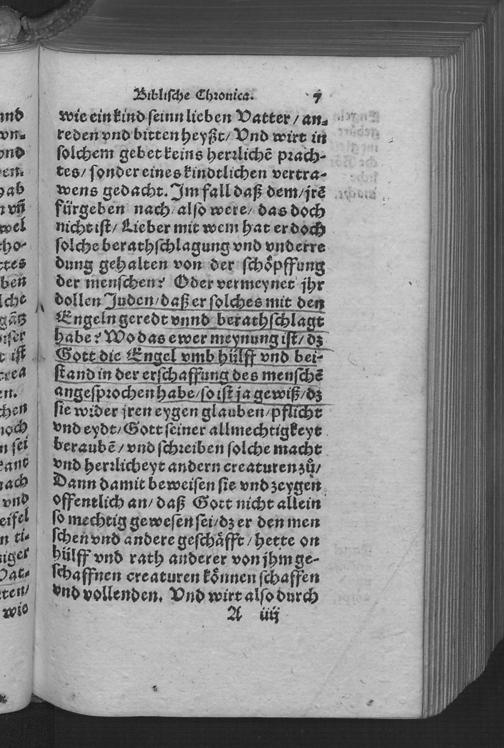 Biblische Chronica. 7
wie ein kind seinn lieben Vatter / an-
reden vnd bitten heyßt / Vnd wirt in
solchem gebet keins herrlichẽ prach-
tes / sonder eines kindtlichen vertra-
wens gedacht. Im fall daß dem / jrẽ
fürgeben nach / also were / das doch
nicht ist / Lieber mit wem hat er doch
solche berathschlagung vnd vnderre
dung gehalten von der schöpffung
der menschen? Oder vermeynet jhr
dollen Juden / daß er solches mit den
Engeln geredt vnnd berathschlagt
habe? Wo das ewer meynung ist / dz
Gott die Engel vmb hülff vnd bei-
stand in der erschaffung des menschẽ
angesprochen habe / so ist ja gewiß / dz
sie wider jren eygen glauben / pflicht
vnd eydt / Gott seiner allmechtigkeyt
beraubẽ / vnd schreiben solche macht
vnd herrlicheyt andern creaturen zů /
Dann damit beweisen sie vnd zeygen
offentlich an / daß Gott nicht allein
so mechtig gewesen sei / dz er den men
schen vnd andere geschäfft / hette on
hülff vnd rath anderer von jhm ge-
schaffnen creaturen können schaffen
vnd vollenden. Vnd wirt also durch
A iiij